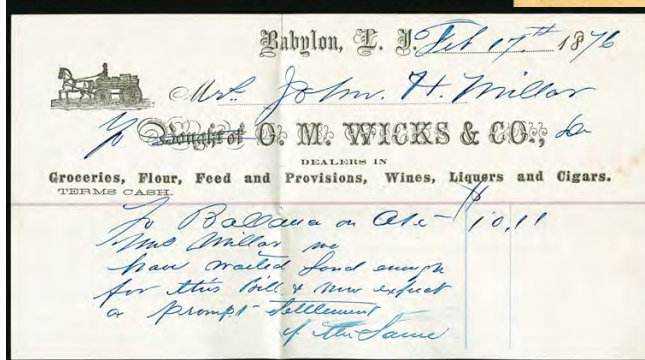 Babylon, L. I. Feb 17th 1876
Mrs. John. H. Millar
To Bought of O. M. WICKS & CO., Dr
DEALERS IN
Groceries, Flour, Feed and Provisions, Wines, Liquors and Cigars.
TERMS CASH.
To Ballance on Act $10.11
Mrs Millar we
have waited Long enough
for this Bill & now expect
a prompt Settlement
of the Same